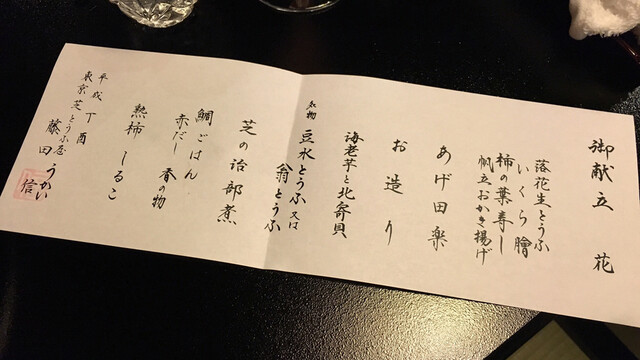 御献立 花
落花生とうふ
いくら膾
柿の葉寿し
帆立おかき揚げ
あげ田楽
お造り
海老芋と北寄貝
名物 豆水とうふ又は
翁とうふ
芝の治部煮
鯛ごはん
赤だし 香の物
熟柿 しるこ
平成 丁酉
東京芝とうふ屋うかい
藤田 信